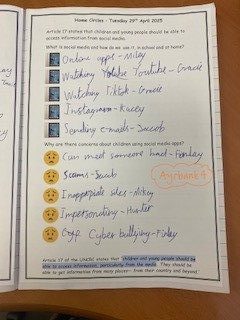 Home Circles - Tuesday 29th April 2025
Article 17 states that children and young people should be able to
access information from social media.
What is social media and how do we use it, in school and at home?
Online apps - Mikey
Watching Youtube Youtube - Gracie
Watching Tiktok - Gracie
Instagram - Kacey
Sending e-mails - Jacob
Why are there concerns about children using social media apps?
Can meet someone bad - Finlay
Scams - Jacob
Ayrbank 4
Inappropiate sites - Mikey
Impersonating - Hunter
Cyber bullying - Finlay
Article 17 of the UNCRC states that 'children and young people should be
able to access information, particularly from the media. They should be
able to get information from many places - from their country and beyond.'